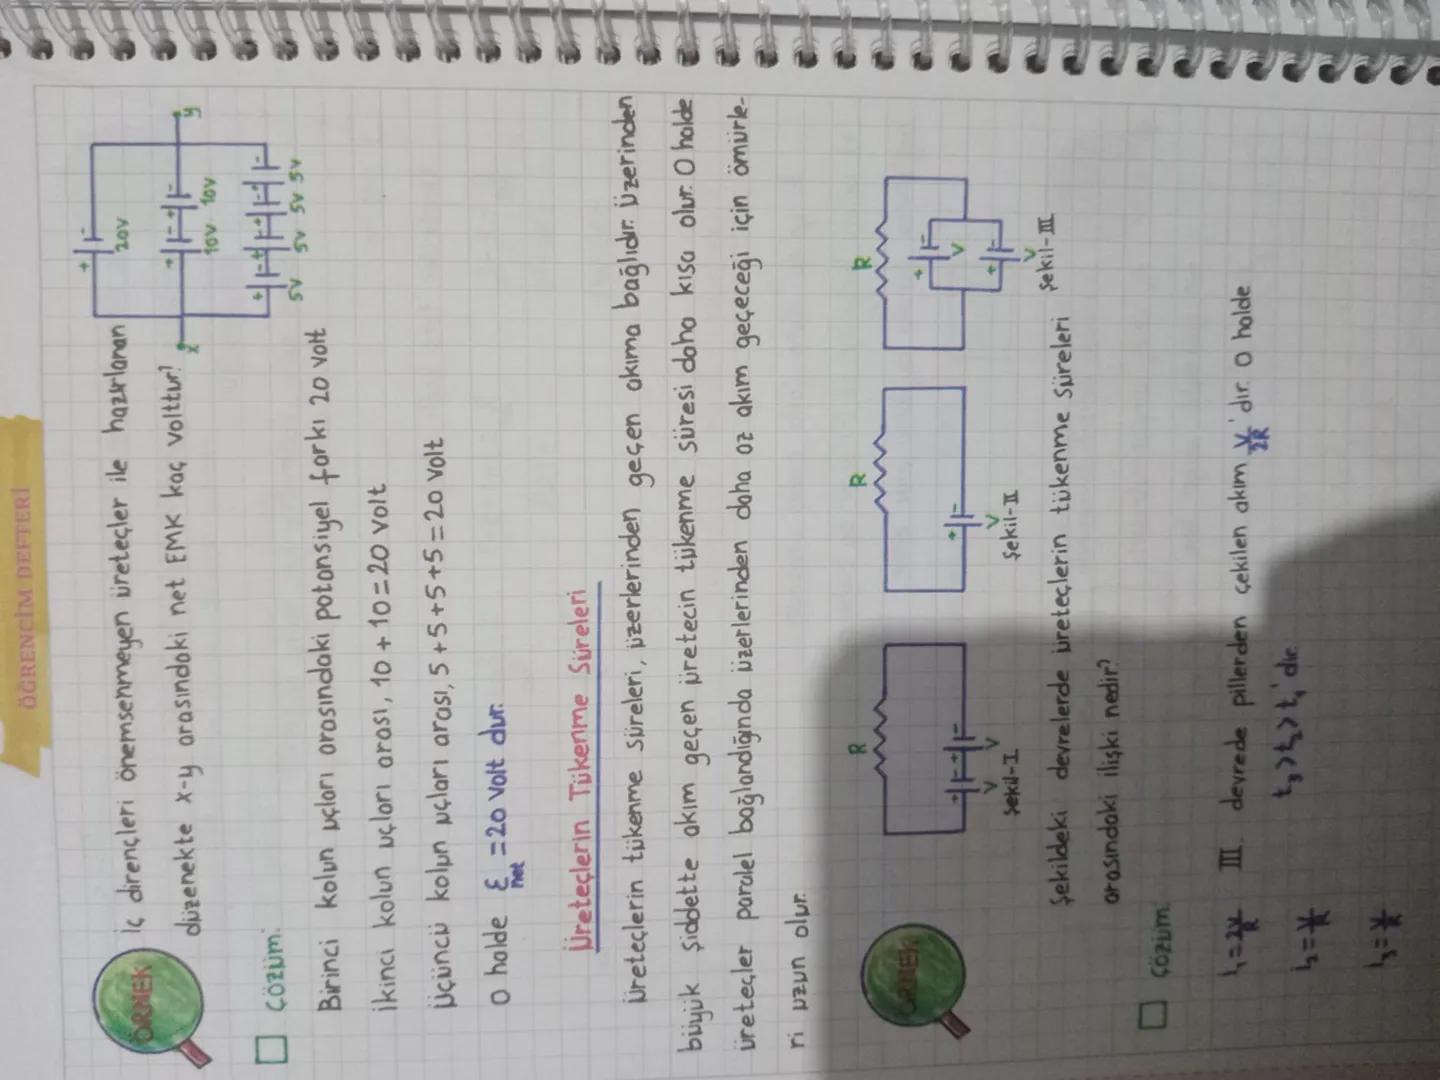 ÖĞRENCİM DEFTERİ
ÖRNEK
İç dirençleri önemsenmeyen üreteçler ile hazırlanan
düzenekte x-y arasındaki net EMK kaç volttur?
+ -
20V
x
y
+ - + -
10V 10V
+ - + - + - + -
5V 5V 5V 5V
Çözüm:
Birinci kolun uçları arasındaki potansiyel farkı 20 volt
İkinci kolun uçları arası, 10 + 10 = 20 volt
Üçüncü kolun uçları arası, 5 + 5 + 5 + 5 = 20 volt
O halde Ɛnet = 20 volt dur.
Üreteçlerin Tükenme Süreleri
Üreteçlerin tükenme süreleri, üzerlerinden geçen akıma bağlıdır. Üzerinden
büyük şiddette akım geçen üretecin tükenme süresi daha kısa olur. O halde
üreteçler paralel bağlandığında üzerlerinden daha az akım geçeceği için ömürle-
ri uzun olur.
ÖRNEK
R
+ - + -
V V
Şekil-I
R
+ -
V
Şekil-II
R
+ -
V
+ -
V
Şekil-III
Şekildeki devrelerde üreteçlerin tükenme süreleri
arasındaki ilişki nedir?
Çözüm:
i₁ = 2V/R III. devrede pillerden çekilen akım V/2R 'dir. O halde
i₂ = V/R t₃ > t₂ > t₁ 'dir.
i₃ = V/R